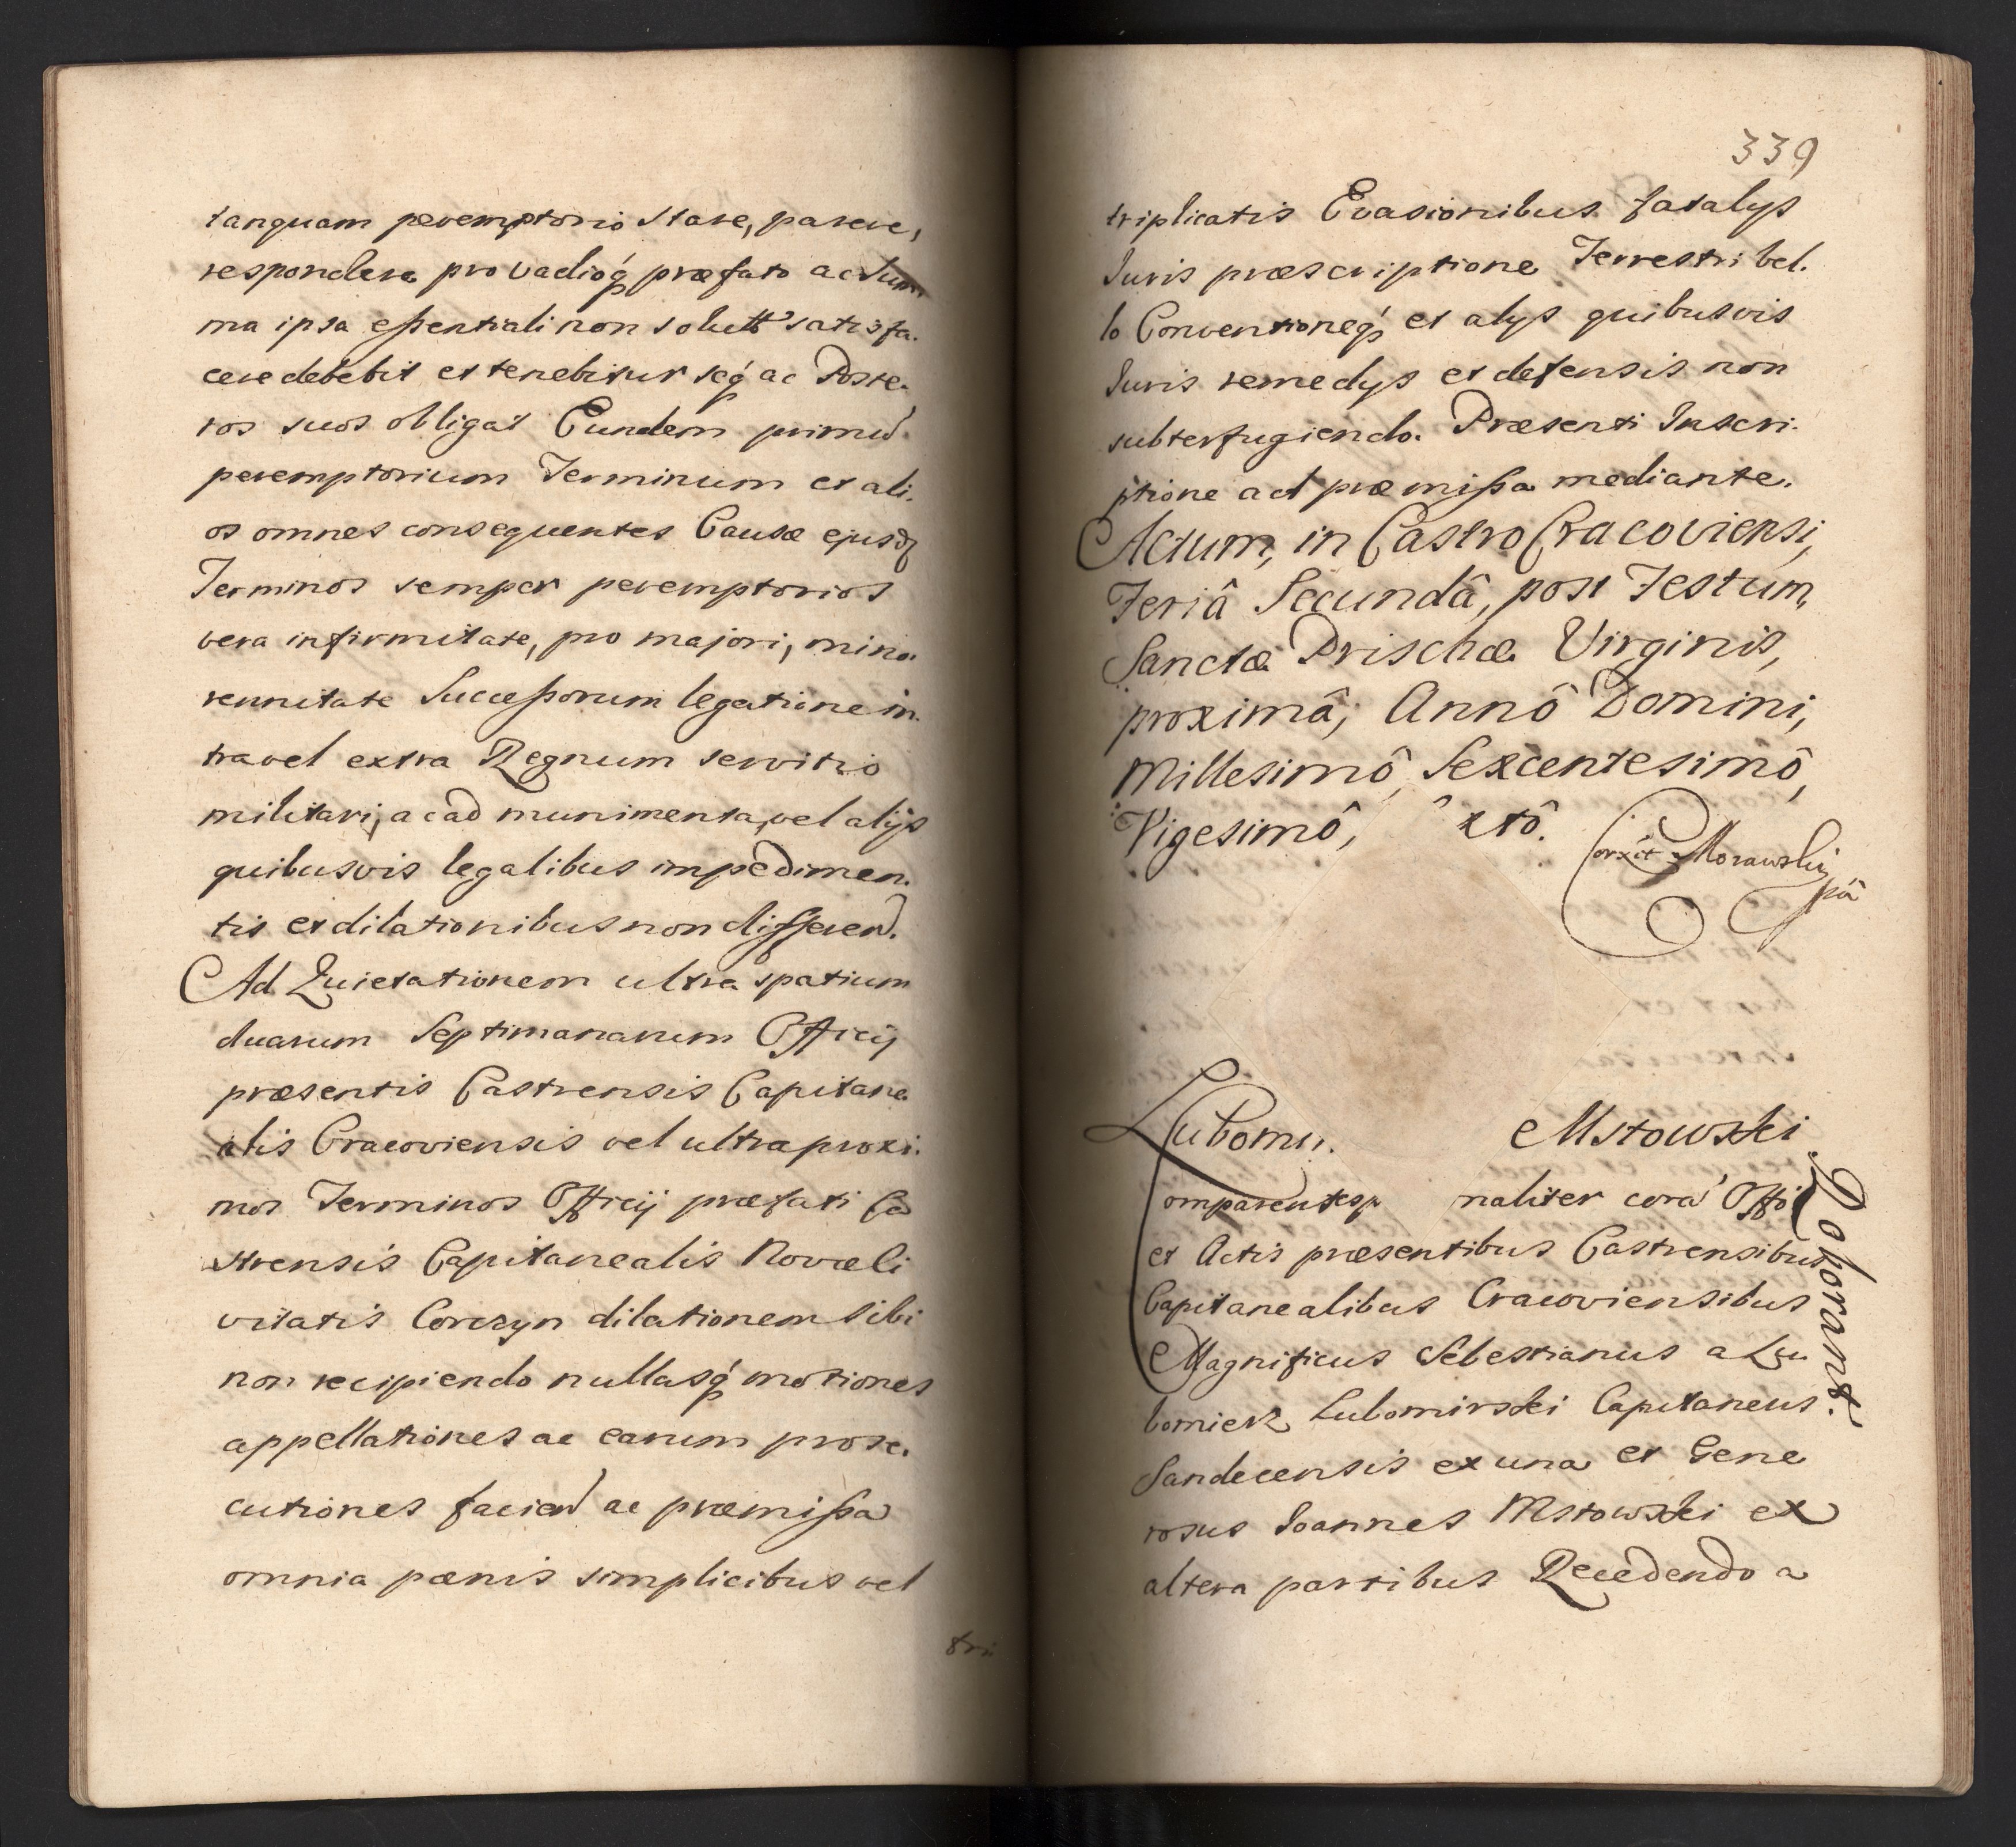 tanquam peremptorio stare, parere,
respondere pro vadioq́ præfato ac Sum
ma ipsa eßentiali non solutt satisfa.
cere debebit et tenebitur seq́ ac Poste.
ros suos obligat Eundem primū
peremptorium Terminum et ali.
os omnes consequentes Causæ ejusdꝫ
Terminos semper peremptorios
vera infirmitate, pro majori, mino.
rennitate Succeßorum legatione in.
tra vel extra Regnum servitio
militari, ac ad munimenta, vel alijs
quibusvis legalibus impedimen.
tis et dilationibus non differend.
Ad Quietationem ultra spatium
duarum Septimanarum Officij
præsentis Castrensis Capitane.
alis Cracoviensis vel ultra proxi.
mos Terminos Officij præfati Ca
strensis Capitanealis Novæ Ci
vitatis Corczyn dilationem sibi
non recipiendo nullasq́ motiones
appellationes ac earum prose.
cutiones faciend ac præmißa
omnia pænis simplicibus vel
tri
339
triplicatis Evasionibus fatalÿs
Iuris præscriptione Terrestri bel.
lo Conventioneq́ et alÿs quibusvis
Iuris remedÿs et defensis non
subterfugiendo. Præsenti Inscri.
ptione ad præmißa mediante.
Actum, in Castro Cracoviensi,
Feriâ Secundâ, post Festum,
Sanctæ Prischæ Virginis,
proximâ, Annô Domini,
Millesimô, Sexcentesimô,
Vigesimô, xtô.
Corxit Morawskij
pâ
Lubomir. Mstowski
Roborant.
Comparentes p naliter corā Offi
et Actis præsentibus Castrensibus
Capitanealibus Cracoviensibus
Magnificus Sebestianus a Lu
bomierz Lubomirski Capitaneus.
Sandecensis ex una et Gene
rosus Ioannes Mstowski ex
altera partibus Recedendo a